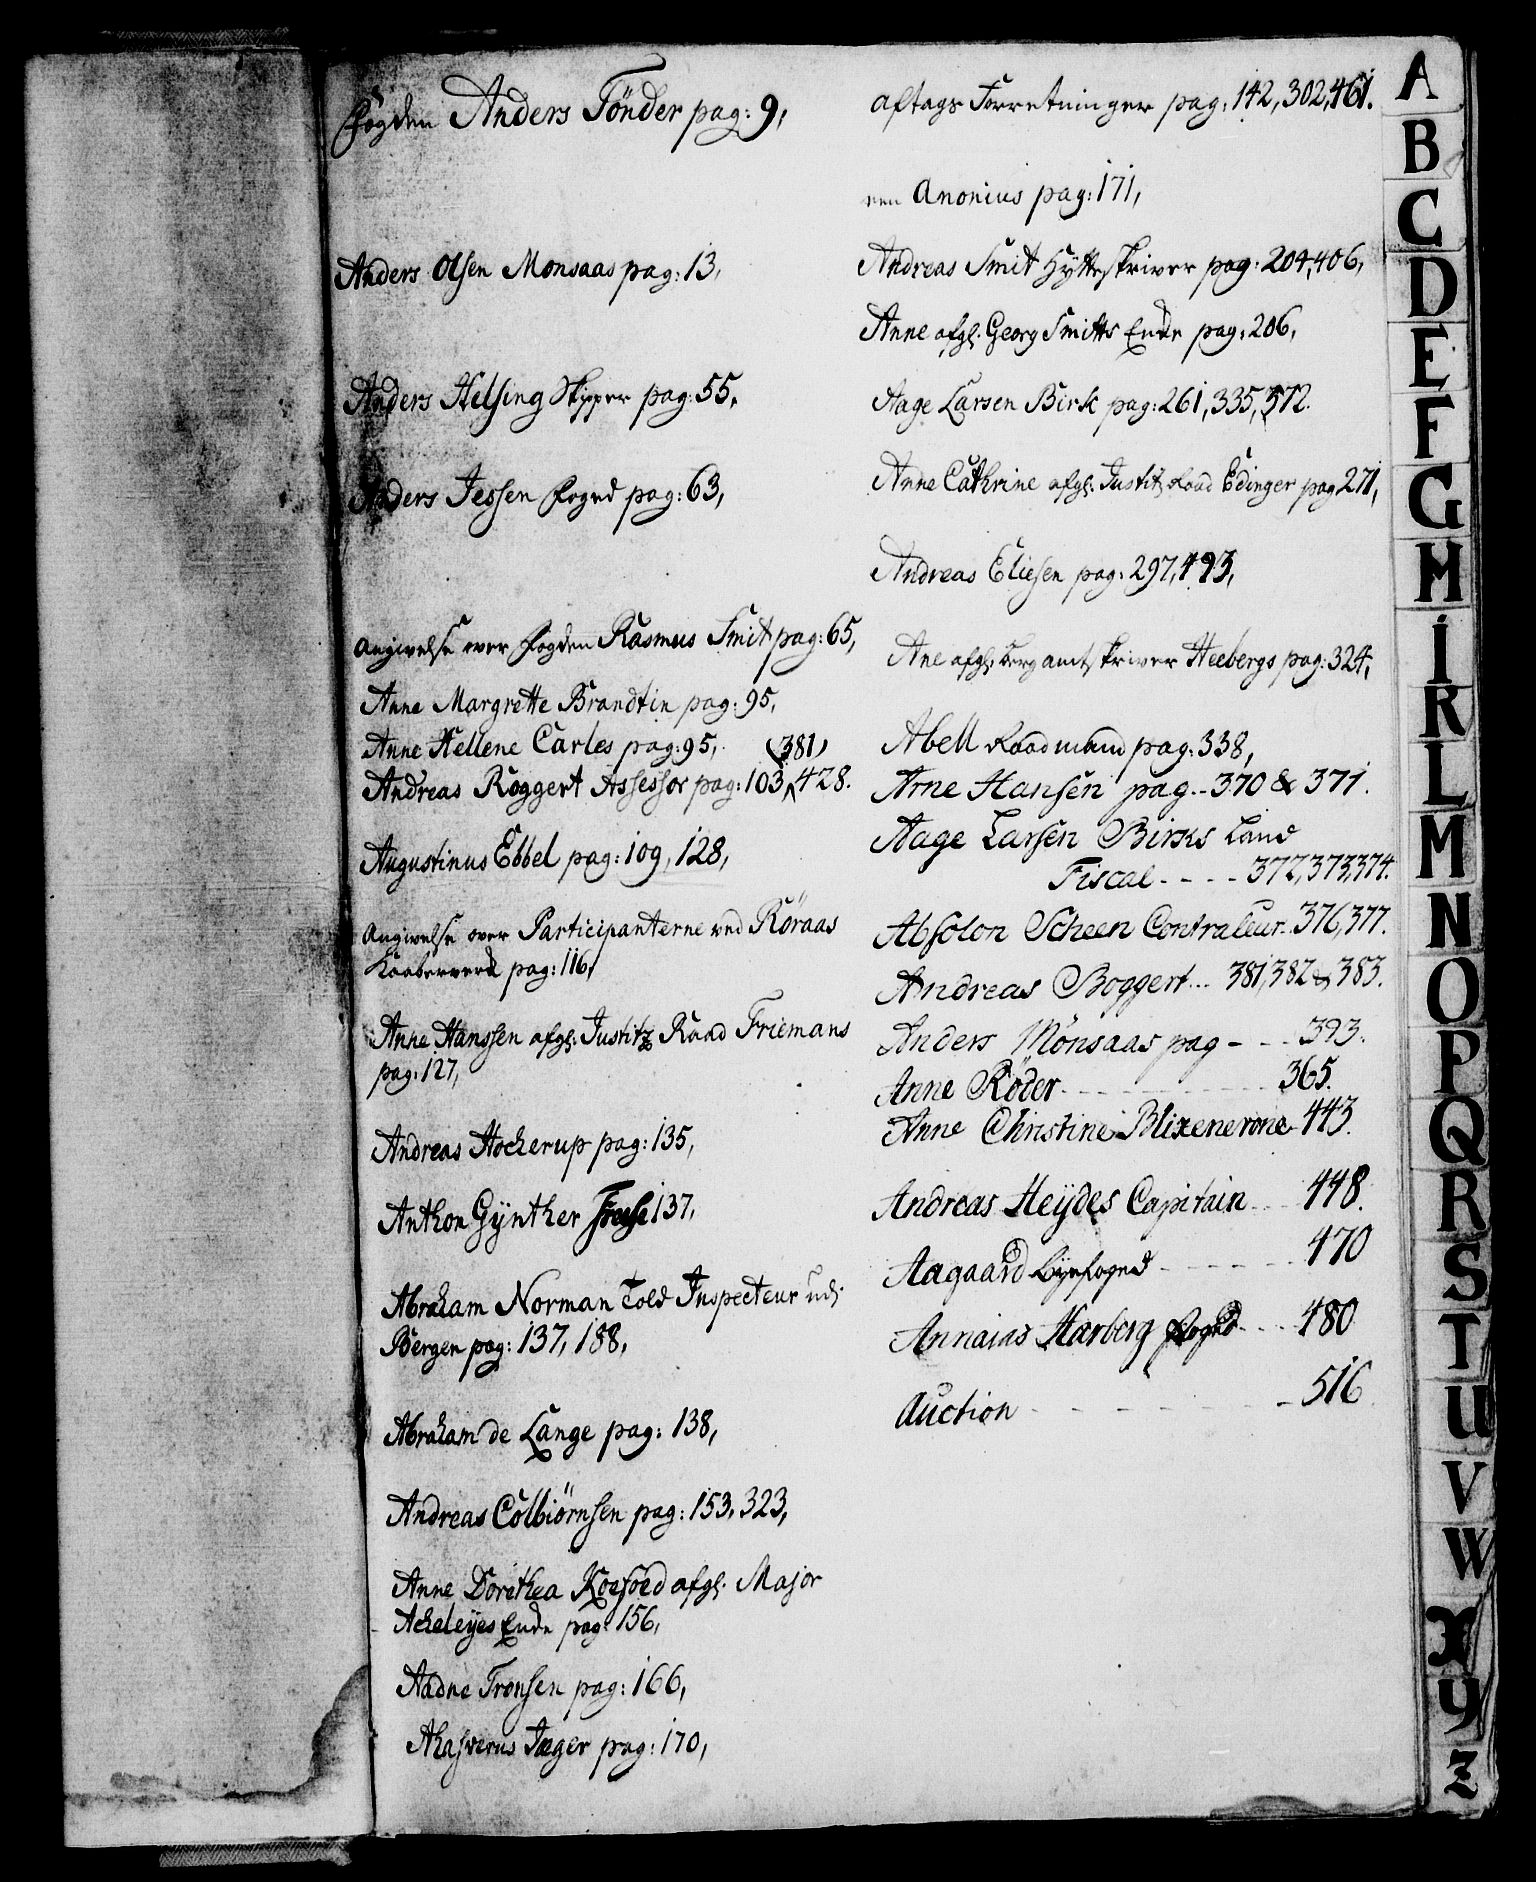 Fogden Anders Tönder pag: 9,
Anders Olsen Monsaas pag: 13,
Anders Helsing Skipper pag: 55,
Anders Jessen Foged pag: 63,
Angivelse over Fogden Rasmus Smit pag: 65,
Anne Margrette Brandtin pag: 95,
Anne Hellene Carles pag: 95,
(381)
Andreas Roggert Assessor pag: 103, 428.
Augustinus Ebbel pag: 109, 128,
Angivelse over Participanterne ved Röraas
Kaaberverk pag: 116,
Anne Hanssen afgl: Justitz Raad Friemans
pag: 127,
Andreas Hockerup pag: 135,
Anthon Gÿnther 137,
Abraham Norman Told Inspecteur udj
Bergen pag: 137, 188,
Abraham de Lange pag: 138,
Andreas Colbiörnsen pag: 153, 323,
Anne Dorethea Koefoed afgl. Major
Acheleÿes Enke pag: 156,
Aadne Tronsen pag: 166,
Ahasverus Jæger pag: 170,
Aftags Forretninger pag: 142, 302, 461.
Anonius pag: 171,
Andreas Smit Hÿtteskriver pag: 204, 406,
Anne afgl. Georg Smitts Enke pag: 206,
Aage Larsen Birk pag: 261, 335, 372.
Anne Cathrine afgl. Justitz Raad Edinger pag 271,
Andreas Eliesen pag: 297, 493,
Ane afgl. Bergamtskriver Heebergs pag: 324,
Abell Raadmand pag: 338,
Arne Hansen pag. 370 & 371.
Aage Larsen Birks Land
Fiscal - - - - 372, 373, 374.
Absolon Scheen Contraleur.. 376, 377.
Andreas Boggert... 381, 382 & 383.
Anders Mönsaas pag - - - 393.
Anne Röder - - - 365.
Anne Christine Blixenerone 443.
Andreas Heÿdes Capitain - - - 448.
Aagaard Bÿefoged - - - - - 470
Annaias Harberg Foged - - - 480
Auction - - - - - - - 516
A
B
C
D
E
F
G
H
I
K
L
M
N
O
P
Q
R
S
T
U
V
W
X
Y
Z